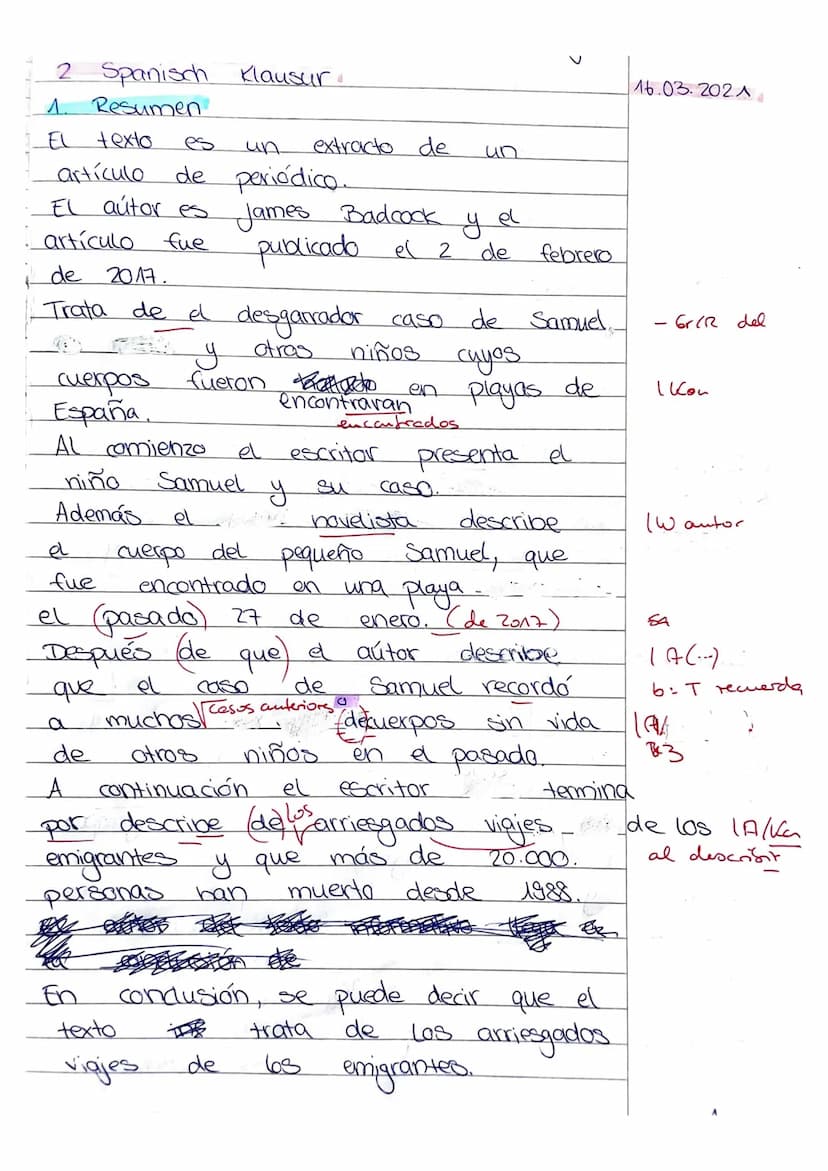 2 Spanisch Klausur.
16.03.2021.
1. Resumen
El texto es un extracto de un
artículo de periódico.
El aútor es James Badcock y el
artículo fue publicado el 2 de febrero
de 2017.
Trata de el desgarrador caso de Samuel,
- Gr/R del
y otros niños cuyos
cuerpos fueron en playas de
encontraran
1 Kon
España.
encontrados
Al comienzo el escritor presenta el
niño Samuel y su caso.
Además el novelista describe
1 W autor
el cuerpo del pequeño Samuel, que
fue encontrado en una playa
el (pasado) 27 de enero. (de 2017)
SA
Después (de que) el aútor describe
1 A(...)
que el caso de Samuel recordó
b: T recuerda
a muchos casos anteriores (de) cuerpos sin vida
de otros niños en el pasado.
A continuación el escritor termina
por describe (de) los arriesgados viajes de los
1 A/Kon
emigrantes y que más de 20.000.
al describir
personas han muerto desde 1988.
En conclusión, se puede decir que el
texto trata de los arriesgados
viajes de los emigrantes.